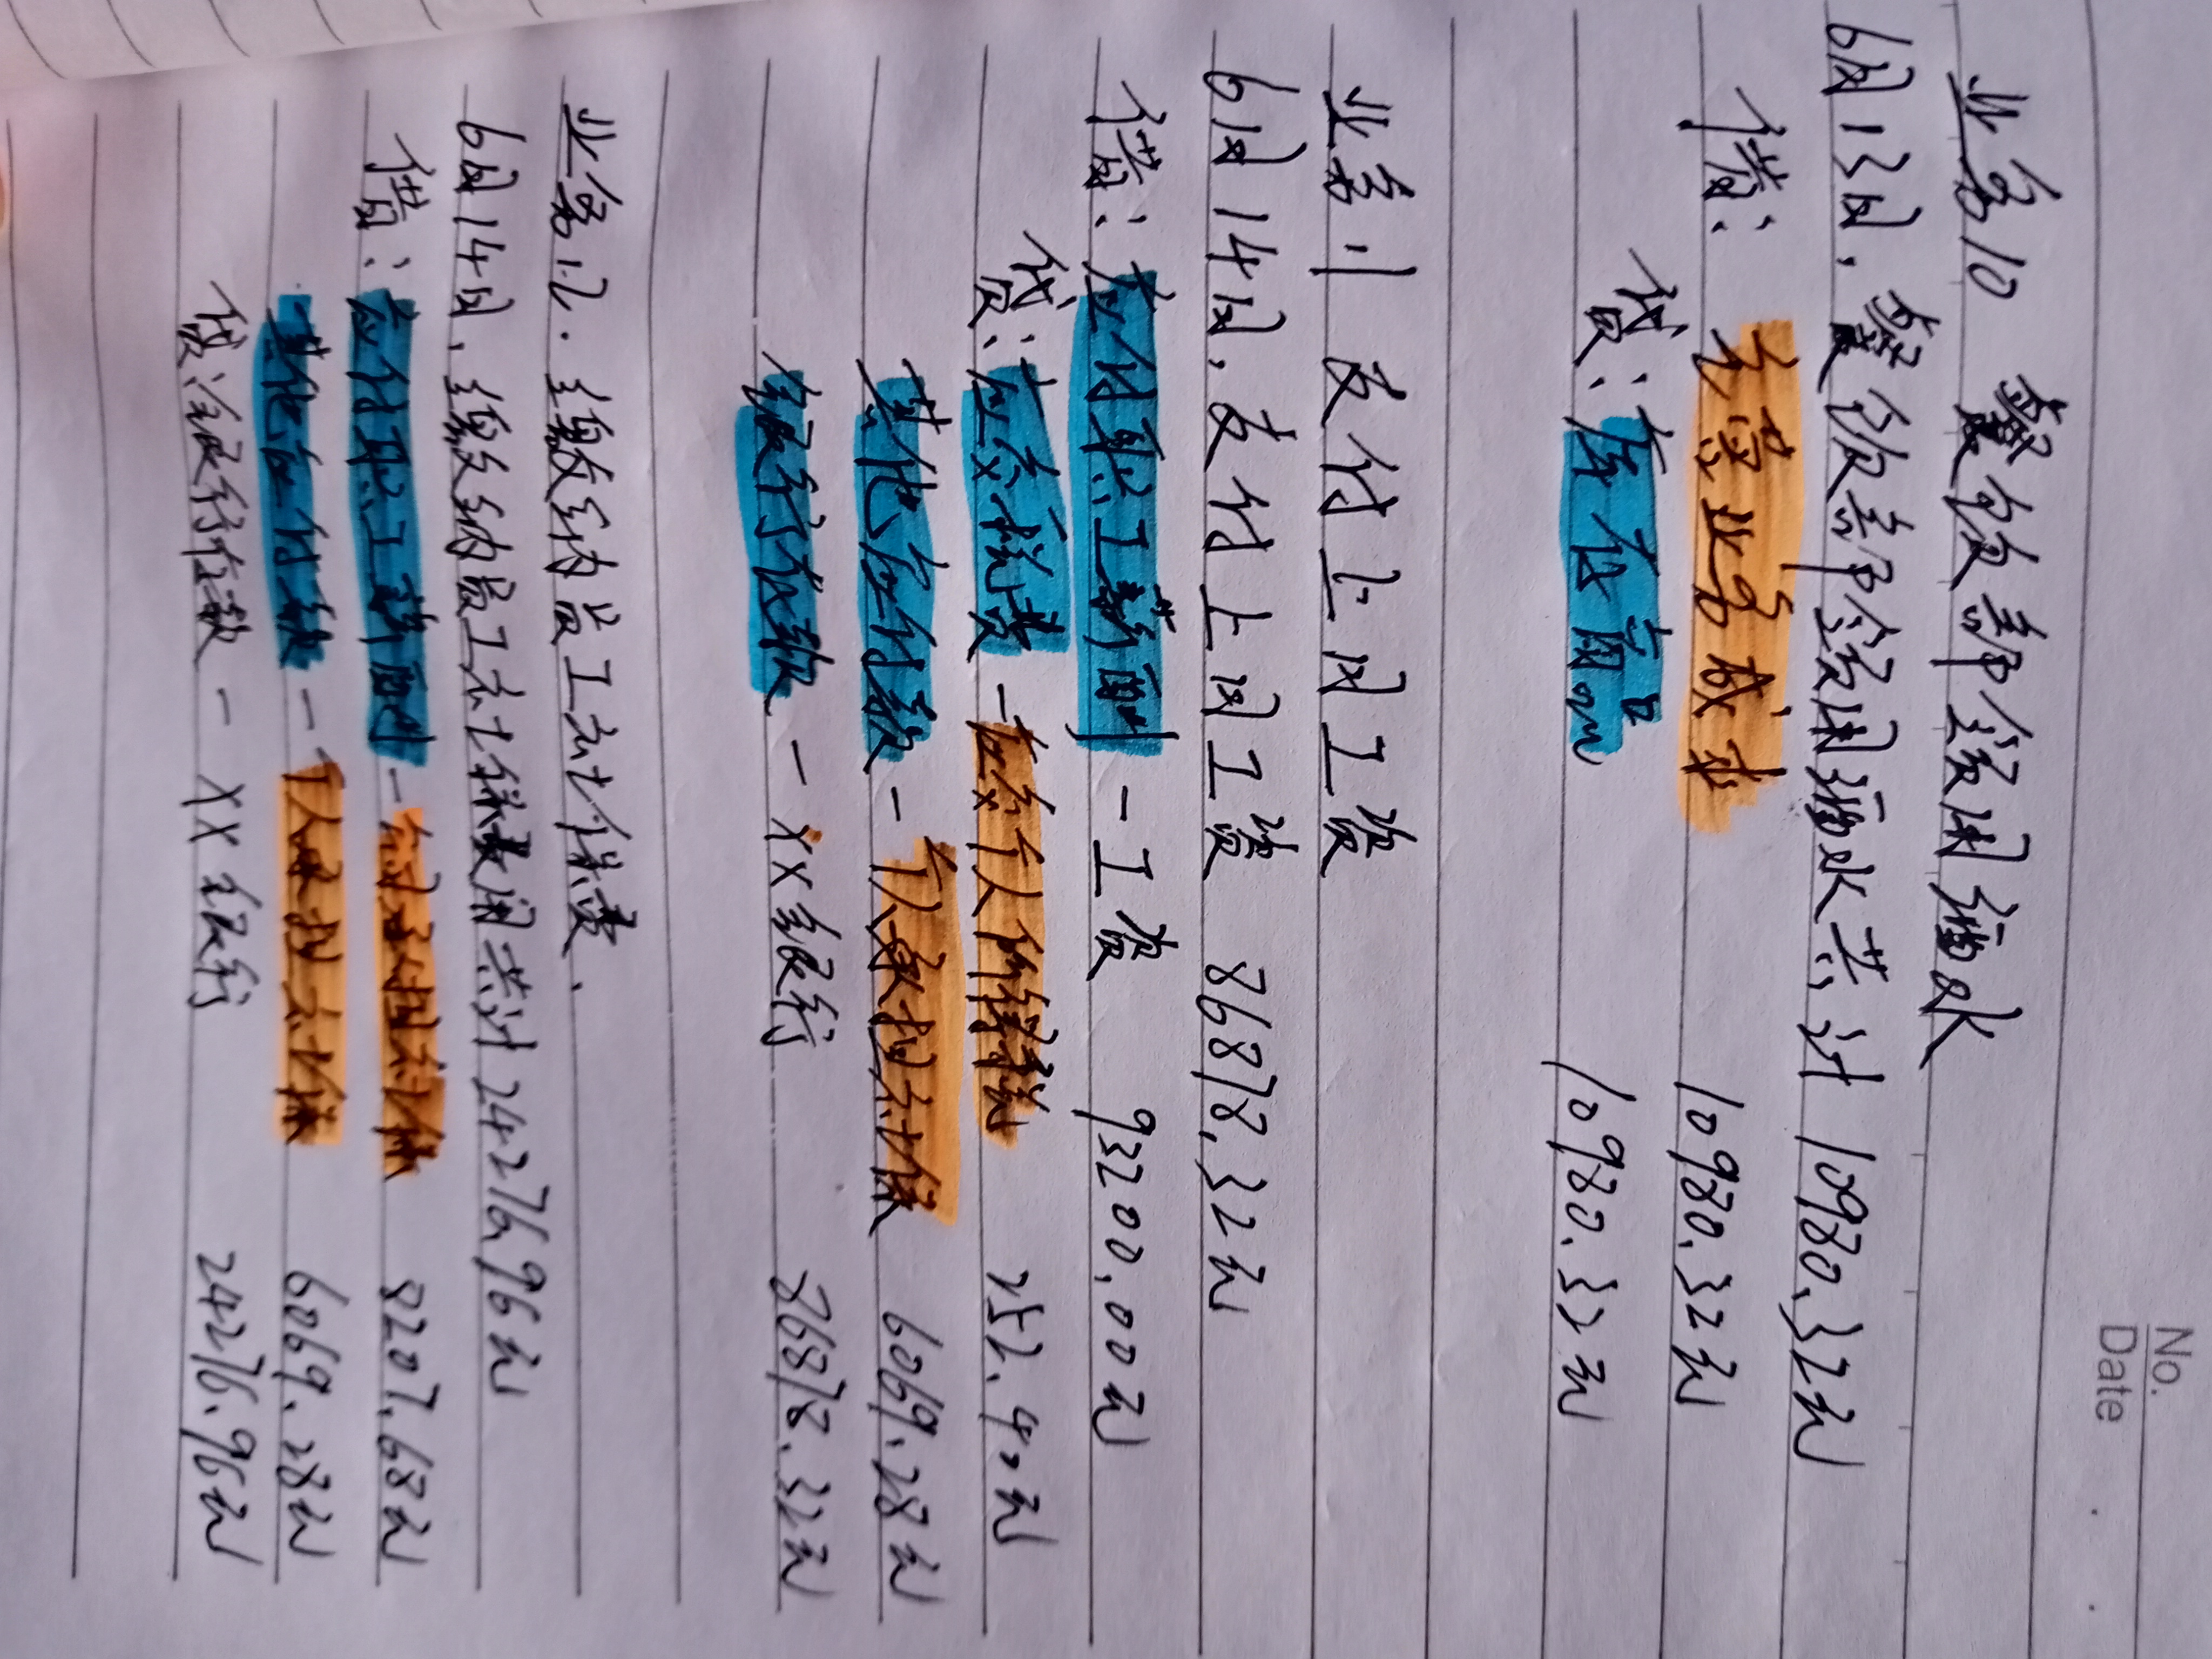 No.
Date
业务10 餐饮部领用酒水
6月13日,餐饮部领用酒水共计10980.32元
借:主营业务成本 10980.32元
贷:库存商品 10980.32元
业务11 支付上月工资
6月14日,支付上月工资 86878.32元
借:应付职工薪酬-工资 93200.00元
贷:应交税费-应交个人所得税 252.40元
其他应付款-个人承担社保 6069.28元
银行存款-XX银行 86878.32元
业务12.缴纳员工社保费.
6月14日,缴纳员工社保费用共计24276.96元
借:应付职工薪酬-公司承担社保 8207.68元
其他应付款-个人承担社保 6069.28元
贷:银行存款-XX银行 24276.96元